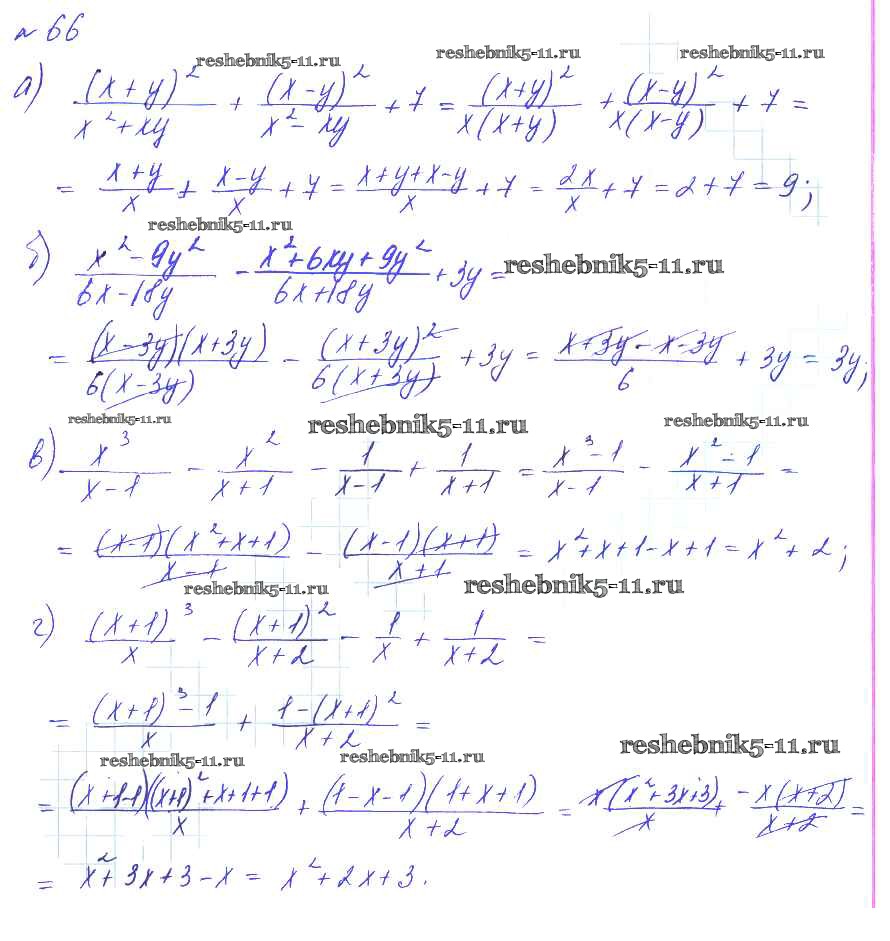 № 66
reshebnik5-11.ru reshebnik5-11.ru reshebnik5-11.ru
а) (x+y)²/(x²+xy) + (x-y)²/(x²-xy) + 7 = (x+y)²/(x(x+y)) + (x-y)²/(x(x-y)) + 7 =
= (x+y)/x + (x-y)/x + 7 = (x+y+x-y)/x + 7 = 2x/x + 7 = 2+7 = 9;
reshebnik5-11.ru
б) (x²-9y²)/(6x-18y) - (x²+6xy+9y²)/(6x+18y) + 3y = reshebnik5-11.ru
= (x-3y)(x+3y)/(6(x-3y)) - (x+3y)²/(6(x+3y)) + 3y = (x+3y-x-3y)/6 + 3y = 3y;
reshebnik5-11.ru reshebnik5-11.ru reshebnik5-11.ru
в) x³/(x-1) - x²/(x+1) - 1/(x-1) + 1/(x+1) = (x³-1)/(x-1) - (x²-1)/(x+1) =
= (x-1)(x²+x+1)/(x-1) - (x-1)(x+1)/(x+1) = x²+x+1-x+1 = x²+2;
reshebnik5-11.ru reshebnik5-11.ru
г) (x+1)³/x - (x+1)²/(x+2) - 1/x + 1/(x+2) =
= ((x+1)³-1)/x + (1-(x+1)²)/(x+2) =
reshebnik5-11.ru reshebnik5-11.ru reshebnik5-11.ru
= (x+1-1)((x+1)²+x+1+1)/x + (1-x-1)(1+x+1)/(x+2) = x(x²+3x+3)/x + -x(x+2)/(x+2) =
= x²+3x+3-x = x²+2x+3.